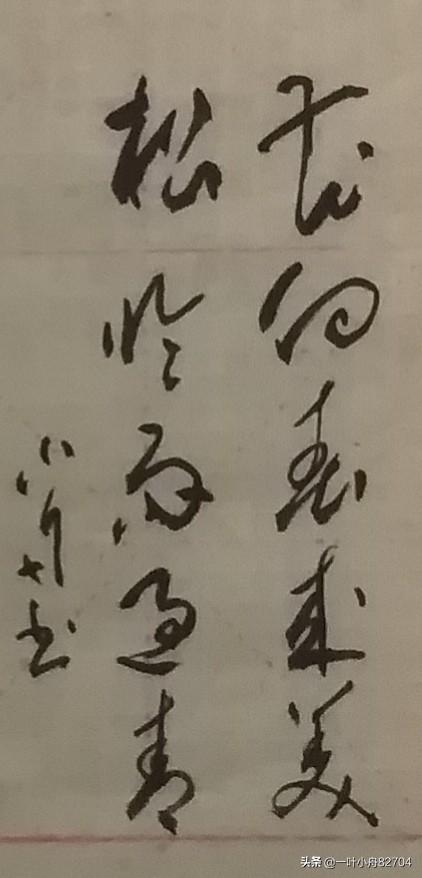 花向春来美
松临雨过青
小舟书
头条 @一叶小舟82704